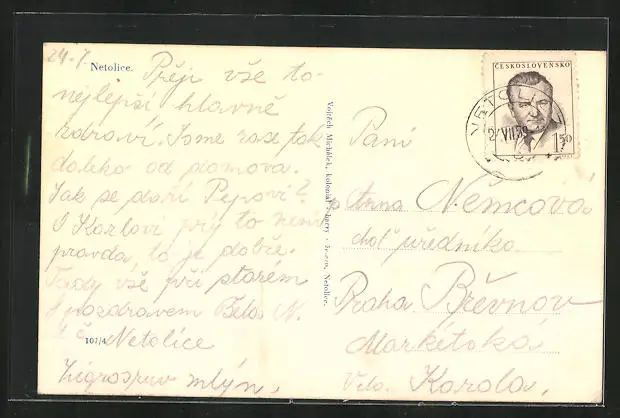 24.7
Netolice.
Přeji vše to
nejlepší hlavně
zdraví. Jsme zase tak
daleko od domova.
Jak se daří Pepovi?
O Karlovi prý to není
pravda, to je dobře.
Tady vše při starem
S pozdravem Bela N.
107/4
Netolice
mlýn.
Vojtěch Michálek, kolonial, barvy - železo, Netolice.
ČESKOSLOVENSKO
1.50
NETOLICE
Paní
Anna Němcová
choť úředníka
Praha Břevnov
Markétská
Vila Karola.